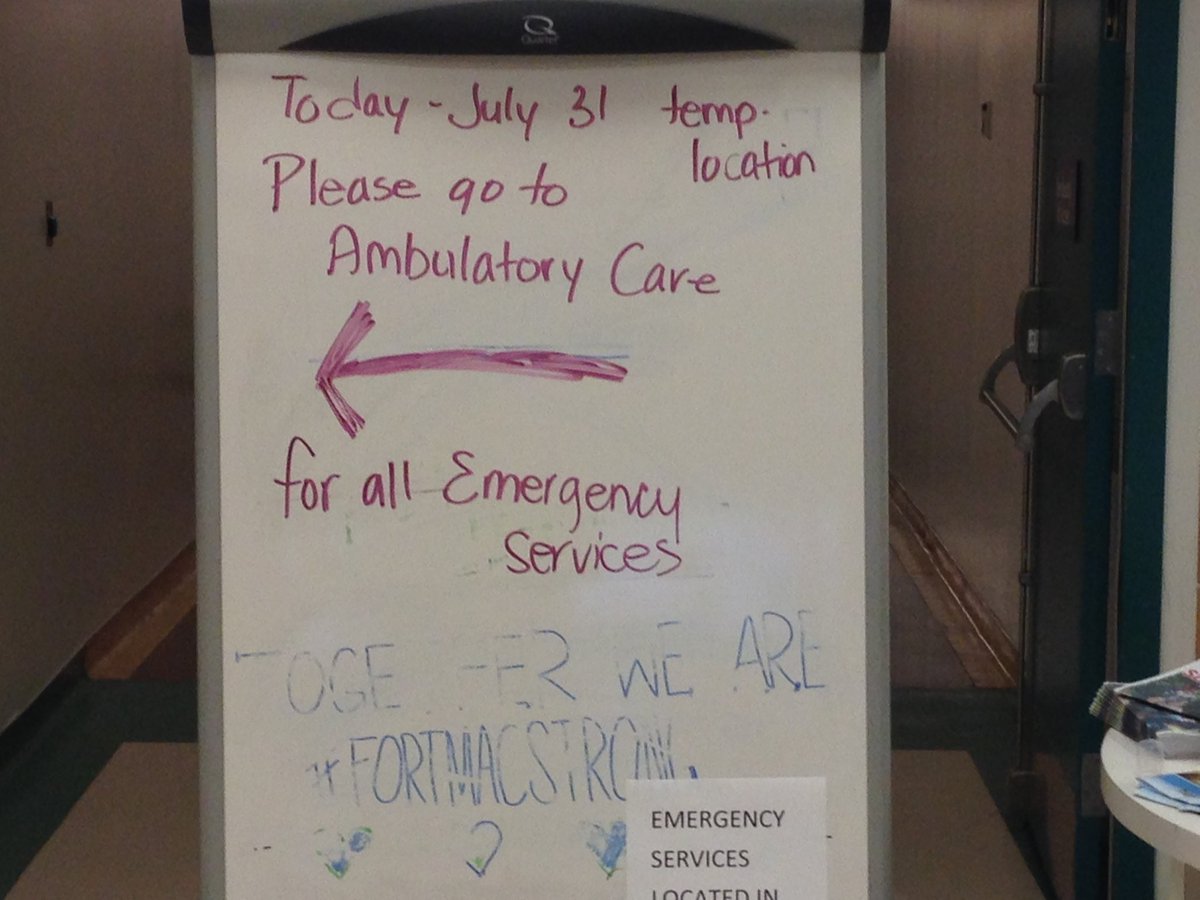 Quartet
Today - July 31 temp.
location
Please go to
Ambulatory Care
for all Emergency
Services
TOGETHER WE ARE
#FORTMACSTRONG
EMERGENCY
SERVICES
LOCATED IN